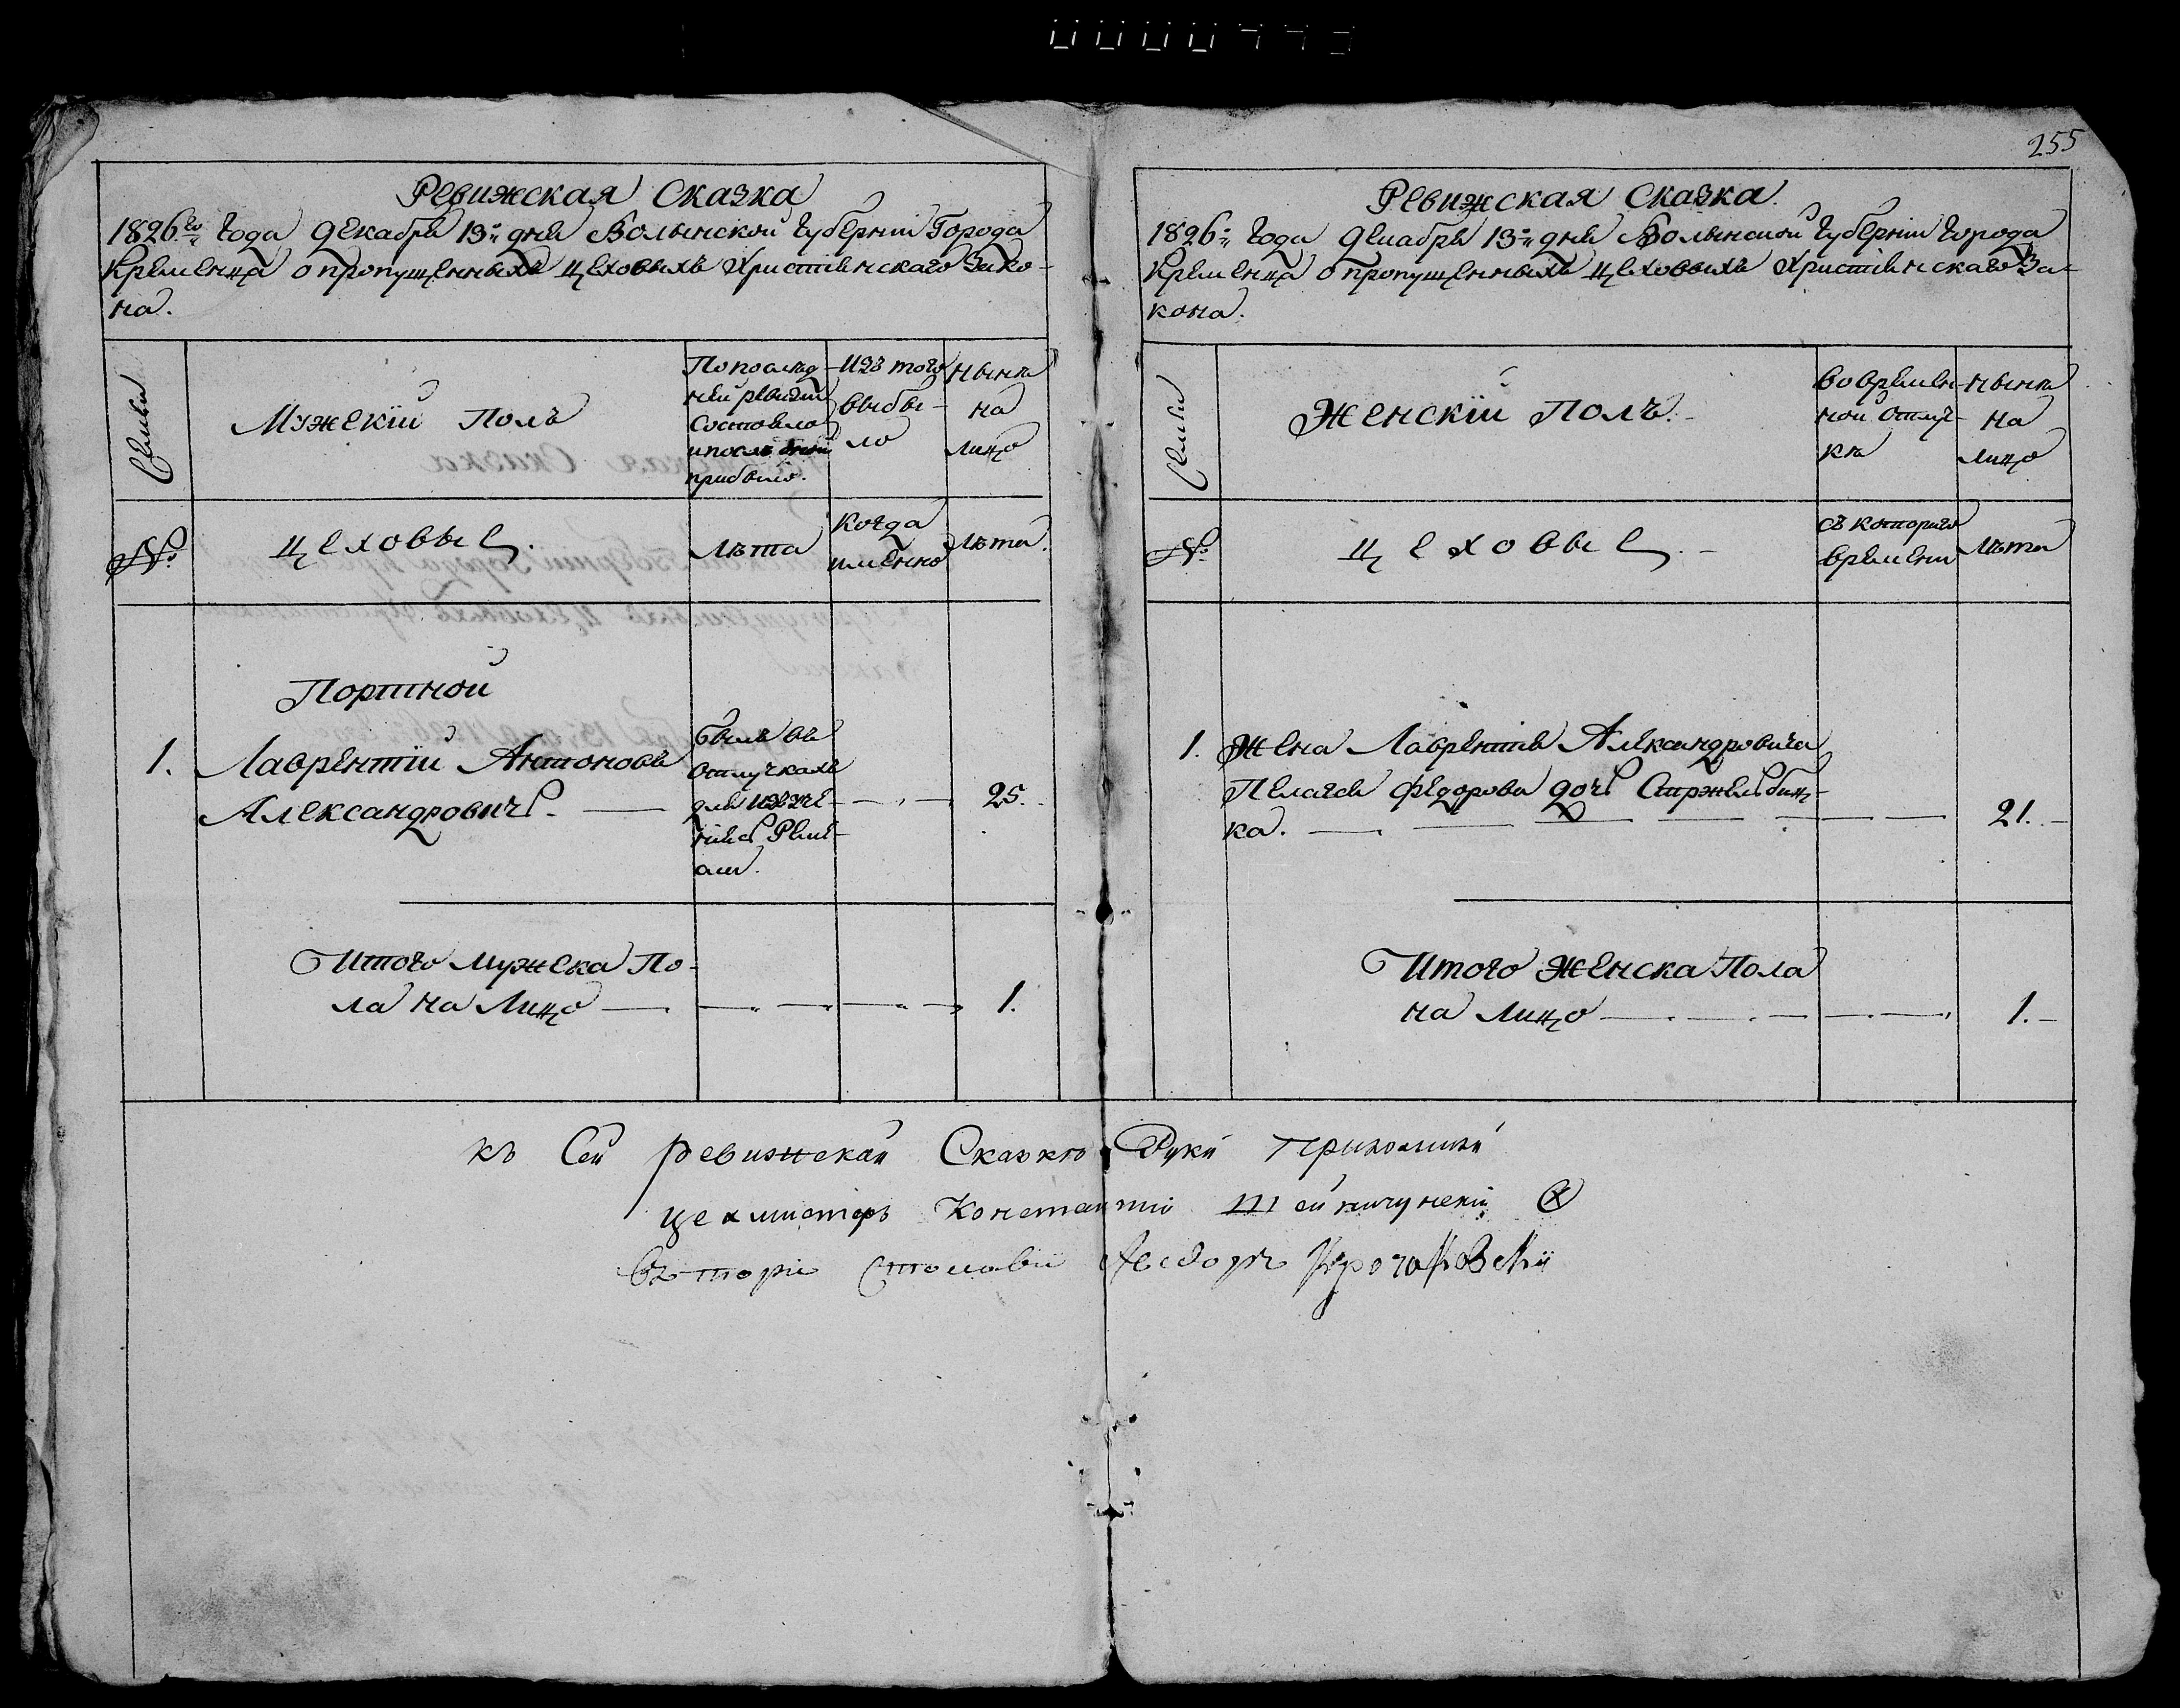 255
Ревижская Сказка
1826го года декабря 13го дня Волынской губернии Города
Кременца о пропущенныхъ цеховыхъ Христіенскаго Зако-
на.
Семьи
Мужескій Полъ
По послед-
ней ревизіи
Состояло
и после оной
прибыло.
Изъ того
выбы-
ло
Нынѣ
на
лицо
№
цеховые.
Лѣта
Когда
именно
Лѣта.
Портной
1.
Лаврентій Антоновъ
Александровичь.
былъ въ
отлучкахъ
для изъуче-
нія Реме-
сла.
25.
Итого мужеска По-
ла на Лицо
1.
Ревижская Сказка
1826го года декабря 13го дня Волынской губерніи города
Кременца о пропущенныхъ цеховыхъ Христіенскаго За-
кона.
Семьи
Женскій Полъ.
Во времен-
ной отлуч-
кѣ
Нынѣ
на
лицо
№
цеховые.
съ котораго
времени
Лѣта
1.
Жена Лаврентія Александровича
Пелагея Федорова дочь Стржельбиц-
ка.
21.
Итого Женска Пола
на лицо
1.
къ Сей ревижской Сказкѣ Руки приложили
цехмистеръ Константій
Федоръ